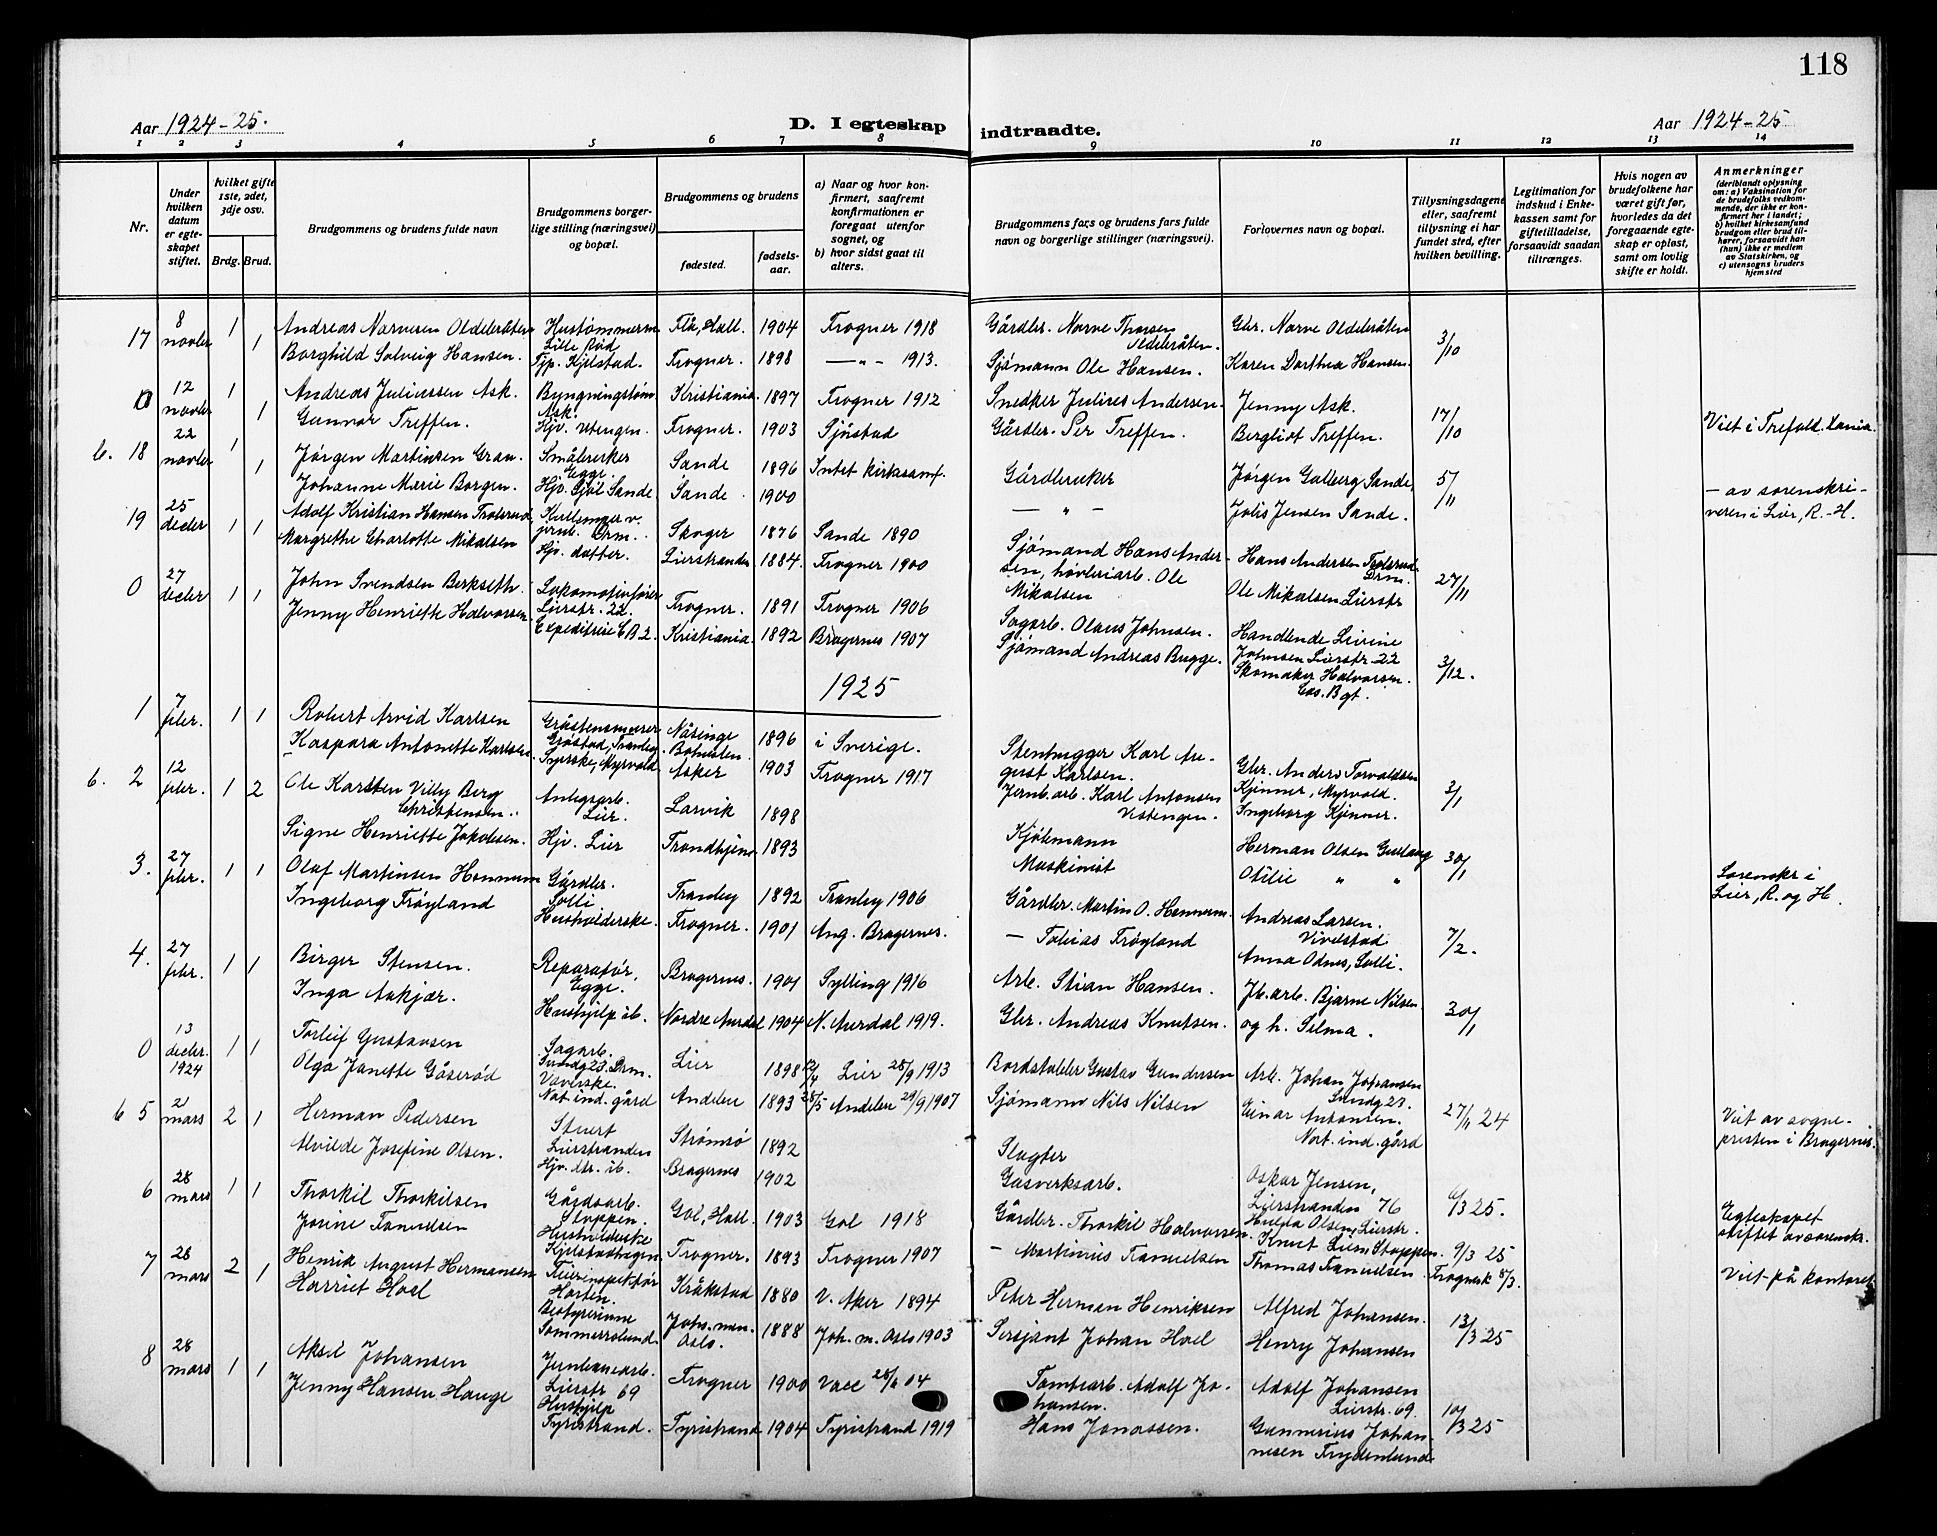 118
Aar 1924-25.
D. I egteskap indtraadte.
Aar 1924-25
1 2 3 4 5 6 7 8 9 10 11 12 13 14
Nr.
Under hvilken datum er egteskapet stiftet.
hvilket gifte 1ste, 2det, 3dje osv.
Brdg. Brud.
Brudgommens og brudens fulde navn
Brudgommens borgerlige stilling (næringsvei) og bopæl.
Brudgommens og brudens
fødested.
fødselsaar.
a) Naar og hvor konfirmert, saafremt konfirmationen er foregaat utenfor sognet, og
b) hvor sidst gaat til alters.
Brudgommens fars og brudens fars fulde navn og borgerlige stillinger (næringsvei).
Forlovernes navn og bopæl.
Tillysningsdagene eller, saafremt tillysning ei har fundet sted, efter hvilken bevilling.
Legitimation for indskud i Enkekassen samt for giftetilladelse, forsaavidt saadan tiltrænges.
Hvis nogen av brudefolkene har været gift før, hvorledes da det foregaaende egteskap er opløst, samt om lovlig skifte er holdt.
Anmerkninger
(deriblandt oplysning om: a) Vaksination for de brudefolks vedkommende, der ikke er konfirmert her i landet; b) hvilket kirkesamfund brudgom eller brud tilhører, forsaavidt han (hun) ikke er medlem av Statskirken, og c) utensogns bruders hjemsted
17 8 novbr 1 1
Andreas Narvesen Oldebråten Hustømmerm. Lille Rød Flå, Hall. 1904 Frogner 1918 Gårdbr. Narve Thorsen Oldebråten. Gbr. Narve Oldebråten 3/10
Borghild Solveig Hansen. Tjp. Kjelstad. Frogner. 1898 —"- 1913. Sjømann Ole Hansen. Karen Dorthea Hansen.
0 12 novbr 1 1
Andreas Juliussen Ask. Bygningstøm. Ask. Kristiania. 1897 Frogner 1912 Snedker Julius Andersen. Jenny Ask. 17/10
Gunnor Treffen. Hjv. Utengen. Frogner. 1903 Sjåstad Gårdbr. Per Treffen. Bergliot Treffen. Viet i Trefold.
6. 18 22 novbr 1 1
Jørgen Martinsen Grau. Småbruker Egge. Sande 1896 Intet kirkesamf. Gårdbruker Jørgen Galberg Sande, 5/11
Johanne Marie Borgen. Hjv. Sande Sande 1900 —"— Jølis Jensen Sande. — av sorenskriveren i Lier, R.-H.
19 25 decbr 1 1
Adolf Kristian Hansen jernb. Drm. Skoger 1876 Sande 1890 Sjømand Hans Andersen, høvleriarb. Ole Mikalsen Hans Andersen Drm.
Margrethe Charlotte Mikalsen Hjv. datter. Lierstranden 1884. Frogner 1900 Ole Mikalsen Lierstr 27/11
0 27 decbr 1 1
John Svendsen Berkseth. Lokomotivfører Lierstr. 22. Frogner. 1891 Frogner 1906 Sagarb. Olaus Johnsen. Handlende Livine Johnsen Lierstr. 22
Jenny Henriette Halvorsen. Kristiania. 1892 Bragernes 1907 Sjømand Andreas Bugge. Skomaker Halvorsen. 3/12.
1925
1 7 febr. 1 1
Robert Arvid Karlsen Gråstad, Tranby. Näsinge Bohuslen 1896 i Sverige. Stenhugger Karl August Karlsen. Gbr. Anders Torvaldsen Kjenner, Myrvold. 3/1
Kaspara Antonette Karlsen Syerske, Myrvold. Asker 1903 Frogner 1917 Jernb. arb. Karl Antonsen Vestengen. Ingeborg Kjenner.
6. 2 12 febr. 1 2
Ole Karsten Villy Berg Christensen. Anlegsarb. Lier. Larvik 1898 Kjøbmann Herman Olsen 30/1
Signe Henriette Jakobsen. Hjv. Lier Trondhjem 1893 Maskinist Otilie " " Sorenskr i Lier, R. og H.
3. 27 febr. 1 1
Olaf Martinsen Hennum Gårdbr. Solli Tranby 1892 Tranby 1906 Gårdbr. Martin O. Hennum. Andreas Larsen. Vivelstad 7/2.
Ingeborg Frøyland Husholderske. Frogner. 1901 Aug. Bragernes. — Tobias Frøyland Anna Odnes, Solli.
4. 27 febr. 1 1
Birger Stensen. Reparatør, Egge. Bragernes. 1901 Sylling 1916 Arb. Stian Hansen. Jb. arb. Bjarne Nilsen 30/1
Inga Askjær. Hushjelp ib. Nordre Aurdal 1904 N. Aurdal 1919. Gbr. Andreas Knutsen. og h. Selma.
0 13 decbr. 1924 1 1
Torleif Gustavsen Sagarb. Sundg 23. Drm. Lier 1898 Lier 28/9 1913 Bordstabler Gustav Gundersen Arb. Johan Johansen Sundg 27. 27/11 24
Olga Janette Gåserød Væverske. Not. ind. gård Andebu 1893 28/5 Andebu 29/9 1907 Sjømann Nils Nilsen Einar Antonsen. Not. ind. gård
6 5 2 mars 2 1
Herman Pedersen Stuert Lierstranden Strømsø 1892 Slagter Oskar Jensen, Lierstranden 76 Viet av sognepresten i Bragernes.
Alvilde Josefine Olsen. Hjv. dtr. ib. Bragernes 1902 Gasverksarb. Hulda Olsen, Lierstr. 6/3 25.
6 28 mars 1 1
Thorkil Thorkilsen Gårdsarb. Stoppen. Gol, Hall. 1903 Gol 1918 Gårdbr. Thorkil Halvorsen. Knut Lien Stoppen. 9/3 25 Egteskapet stiftet av sorenskr.
Josine Tanudsen Husholderske Kjelstadhagen Frogner. 1893 Frogner 1907 — Martinius Thomas Frognerk 8/3.
7 28 mars 2 1
Henrik August Hermansen Horten. Kråkstad 1880 V. Aker 1894 Peter Herman Henriksen Alfred Johansen. 13/3 25 Viet på kontoret
Harriet Hoel Bestyrerinne Sommerrolund. Johs. men. Oslo. 1888 Joh. m. Oslo 1903 Sersjant Johan Hoel Henry Johansen
8 28 mars 1 1
Aksel Johansen Jernbanearb. Lierstr 69 Frogner 1900 Vacc 04 Tomtearb. Adolf Johansen. Adolf Johansen Lierstr. 69. 10/3 25
Jenny Hansen Hauge Hushjelp Tyristrand. Tyristrand 1904 Tyristrand 1919 Hans Jonassen. Gunnerius Johannesen Frydenlund